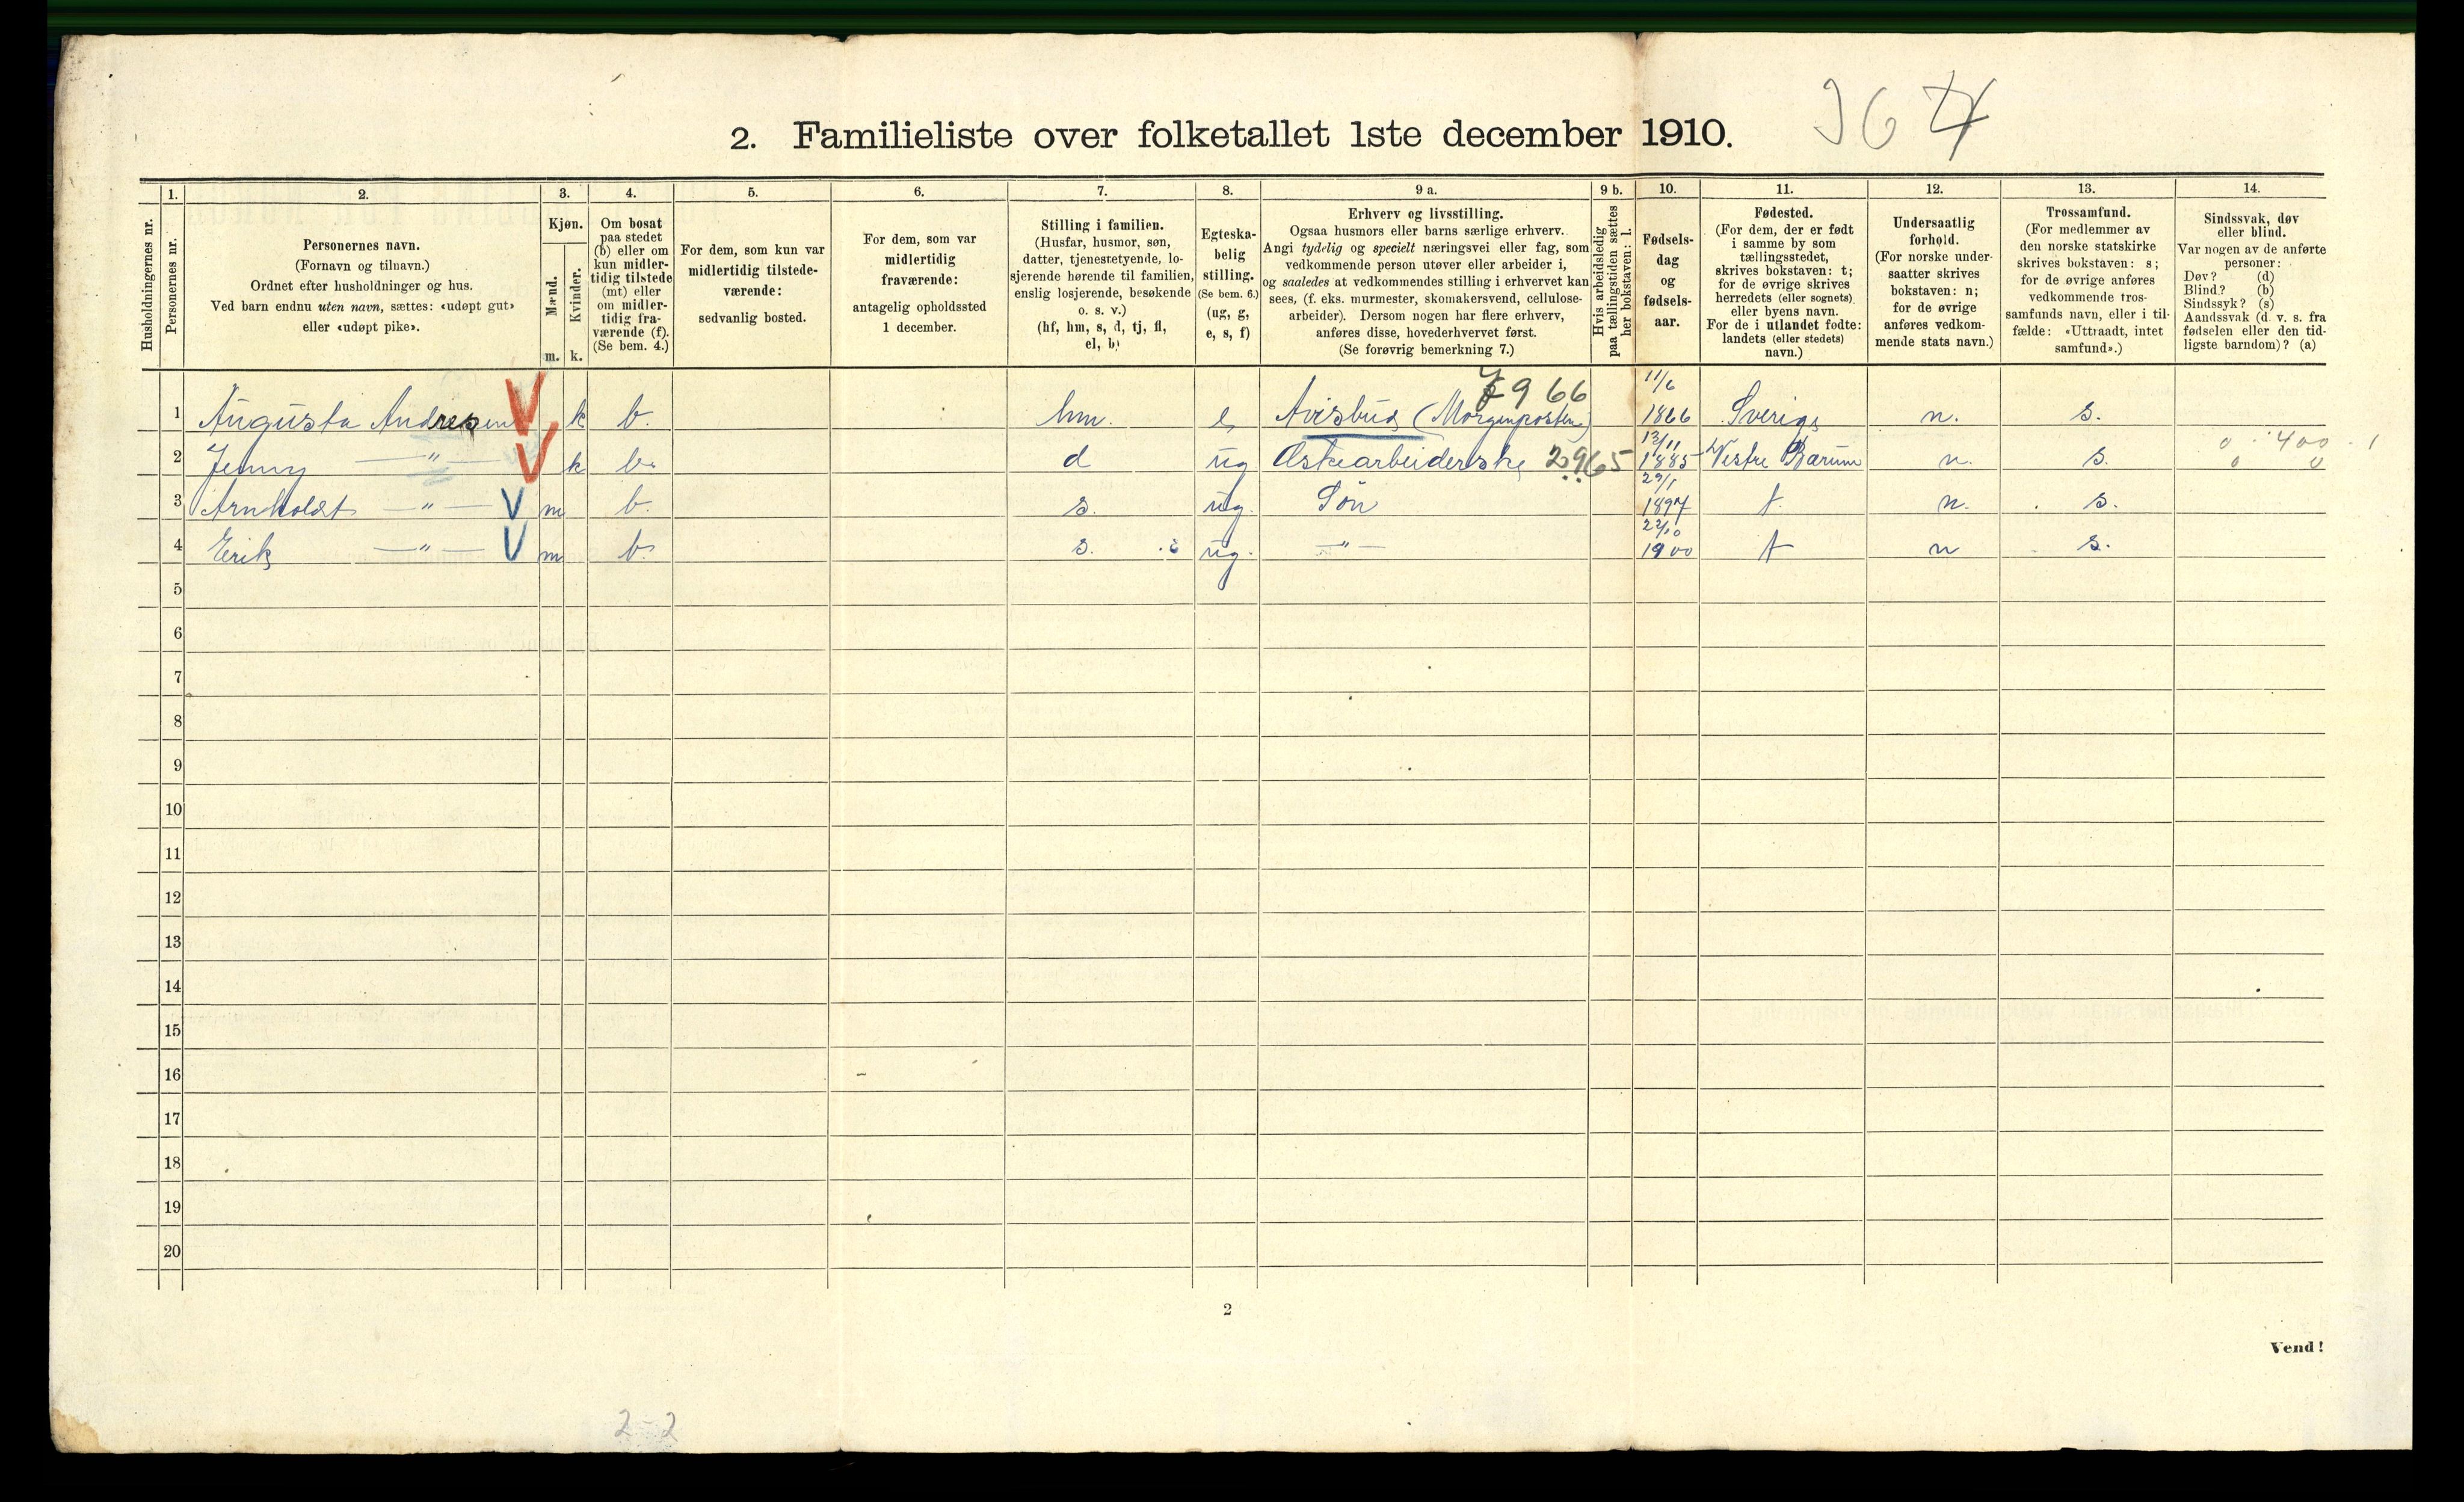 2. Familieliste over folketallet 1ste december 1910.
Husholdningernes nr.
1.
Personernes nr.
2.
Personernes navn.
(Fornavn og tilnavn.)
Ordnet efter husholdninger og hus.
Ved barn endnu uten navn, sættes: «udøpt gut»
eller «udøpt pike».
3.
Kjøn.
Mænd.
Kvinder.
m. k.
4.
Om bosat
paa stedet
(b) eller om
kun midler-
tidig tilstede
(mt) eller
om midler-
tidig fra-
værende (f).
(Se bem. 4.)
5.
For dem, som kun var
midlertidig tilstede-
værende:
sedvanlig bosted.
6.
For dem, som var
midlertidig
fraværende:
antagelig opholdssted
1 december.
7.
Stilling i familien.
(Husfar, husmor, søn,
datter, tjenestetyende, lo-
sjerende hørende til familien,
enslig losjerende, besøkende
o. s. v.)
(hf, hm, s, d, tj, fl,
el, b)
8.
Egteska-
belig
stilling.
(Se bem. 6.)
(ug, g,
e, s, f)
9 a.
Erhverv og livsstilling.
Ogsaa husmors eller barns særlige erhverv.
Angi tydelig og specielt næringsvei eller fag, som
vedkommende person utøver eller arbeider i,
og saaledes at vedkommendes stilling i erhvervet kan
sees, (f. eks. murmester, skomakersvend, cellulose-
arbeider). Dersom nogen har flere erhverv,
anføres disse, hovederhvervet først.
(Se forøvrig bemerkning 7.)
9 b.
Hvis arbeidsledig
paa tællingstiden sættes
her bokstaven: l.
10.
Fødsels-
dag
og
fødsels-
aar.
11.
Fødested.
(For dem, der er født
i samme by som
tællingsstedet,
skrives bokstaven: t;
for de øvrige skrives
herredets (eller sognets)
eller byens navn.
For de i utlandet fødte:
landets (eller stedets)
navn.)
12.
Undersaatlig
forhold.
(For norske under-
saatter skrives
bokstaven: n;
for de øvrige
anføres vedkom-
mende stats navn.)
13.
Trossamfund.
(For medlemmer av
den norske statskirke
skrives bokstaven: s;
for de øvrige anføres
vedkommende tros-
samfunds navn, eller i til-
fælde: «Uttraadt, intet
samfund».)
14.
Sindssvak, døv
eller blind.
Var nogen av de anførte
personer:
Døv? (d)
Blind? (b)
Sindssyk? (s)
Aandssvak (d. v. s. fra
fødselen eller den tid-
ligste barndom)? (a)
1 Augusta Andresen V k b. hm. e Avisbud (Morgenposten) 966 11/6 1866 Sverige n. s.
2 Jenny —"— V k b. d ug Æskearbeiderske 2965 13/11 1885 Vestre Bærum n. s. 0 400
3 Arnholdt —"— V m b. s. ug. Søn 29/1 1897 t. n. s.
4 Erik —"— V m b. s. ug. —"— 22/10 1900 t n s.
5
6
7
8
9
10
11
12
13
14
15
16
17
18
19
20
2
Vend!
2-2